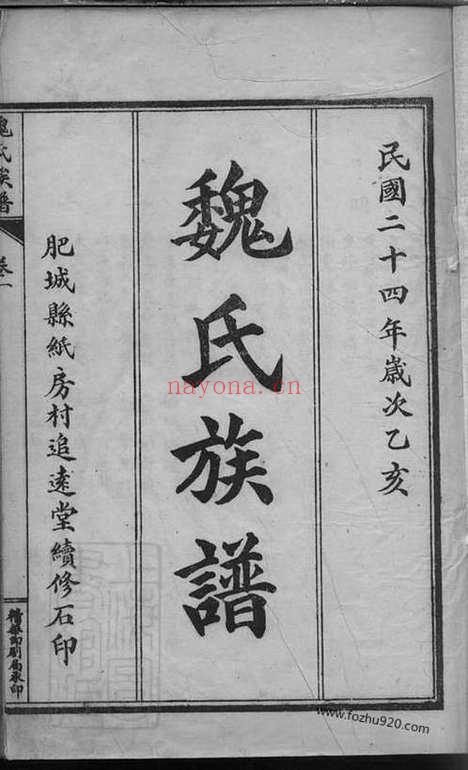 民國二十四年歲次乙亥
魏氏族譜
肥城縣紙房村追遠堂續修石印
魏氏族譜
卷一
印刷局承印
nayona.cn
www.fozhu920.com